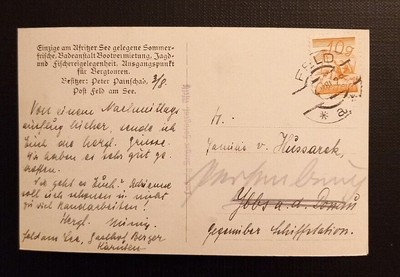 Einzige am Afritzer See gelegene Sommer-
frische. Badeanstalt Bootvermietung, Jagd-
und Fischereigelegenheit. Ausgangspunkt
für Bergtouren.
Besitzer: Peter Painschab,
Post Feld am See.
3/8.
Von einem Nachmittags
ausflug hieher, sende ich
Euch die herzl. Grüsse.
Ihr haben es sehr gut ge-
troffen.
Wie geht es Euch?
soll sich schonen u. nicht
zu viel Handarbeiten!
Herzl.
Feld am See, Gasthof
Kärnten
10 g
FELD
a
Hr.
v. Hussarek,
Ybbs a. d. Donau
Gegenüber Schiffstation.